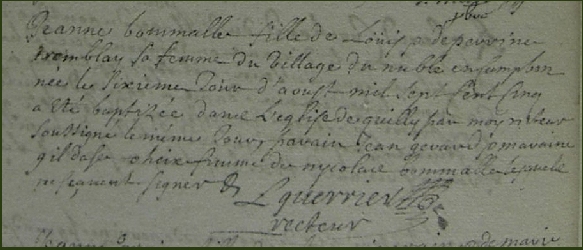 Jeanne bommalle fille de Loüis & de perrine
tremblay sa femme du village du nuble en Campbon
née le sixieme Jour d'aoust mil sept Cent Cinq
a été baptizée dans L'eglise de quilly par moy recteur
soussigné le même Jour parain Jean gerard marainne
gildase cheix femme de nycolas bommalle
ne sçauent signer
L guerrier
recteur